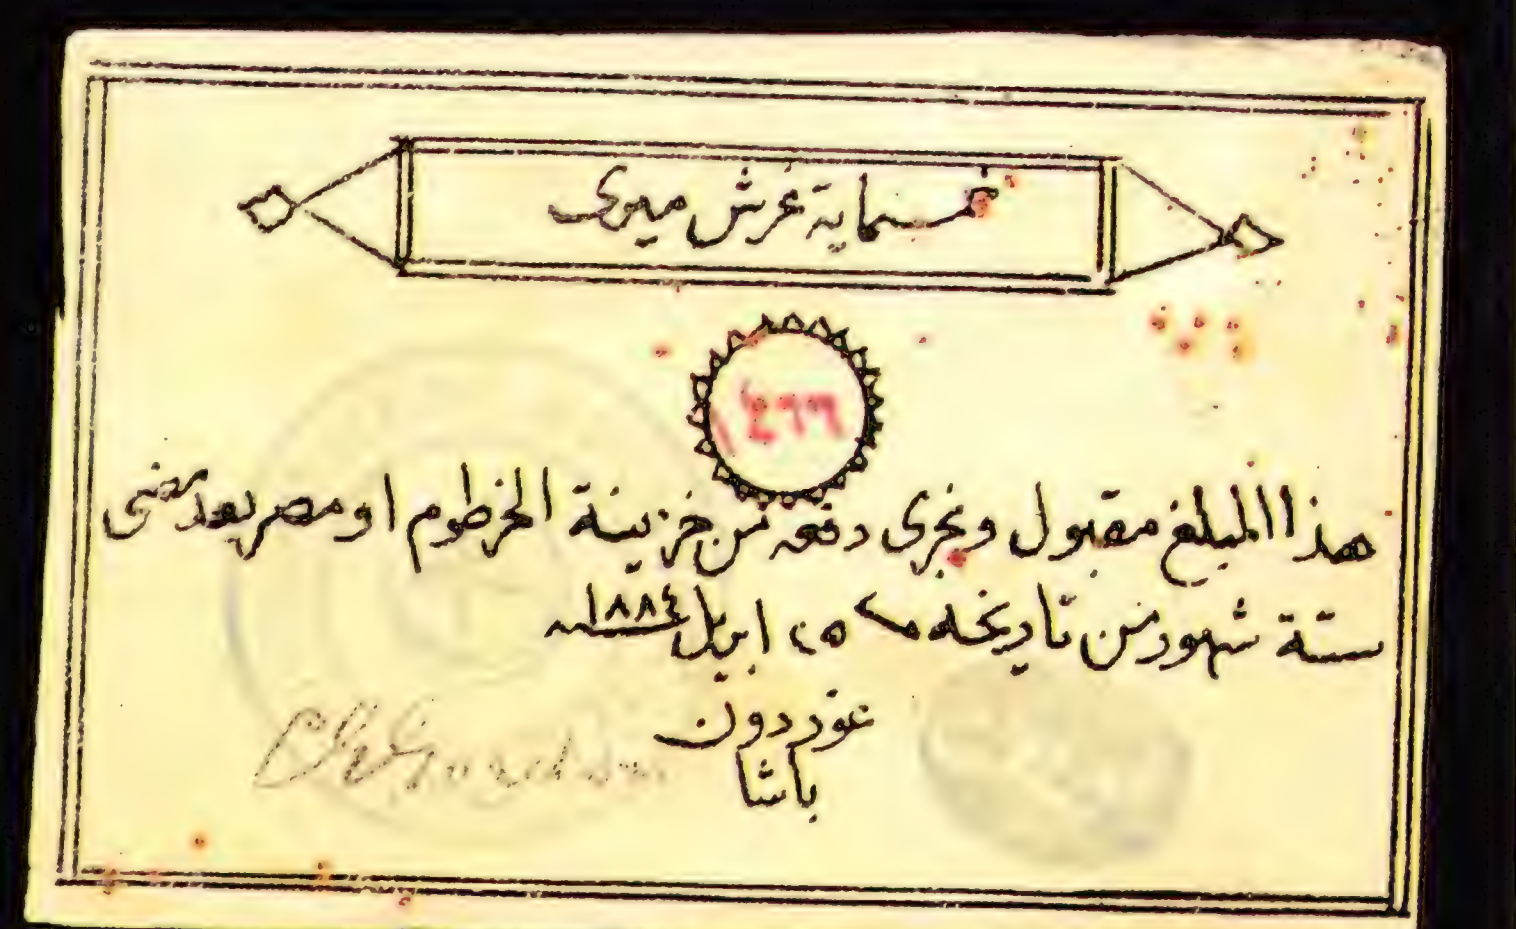 خمسماية غرش ميرى
١٤٦٦
هذا المبلغ مقبول ويجرى دفعه من خزينة الخرطوم او مصر بعد مضى
ستة شهور من تاريخه ٢٥ ابريل ١٨٨٤سنه
غوردون
باشا
C G Gordon